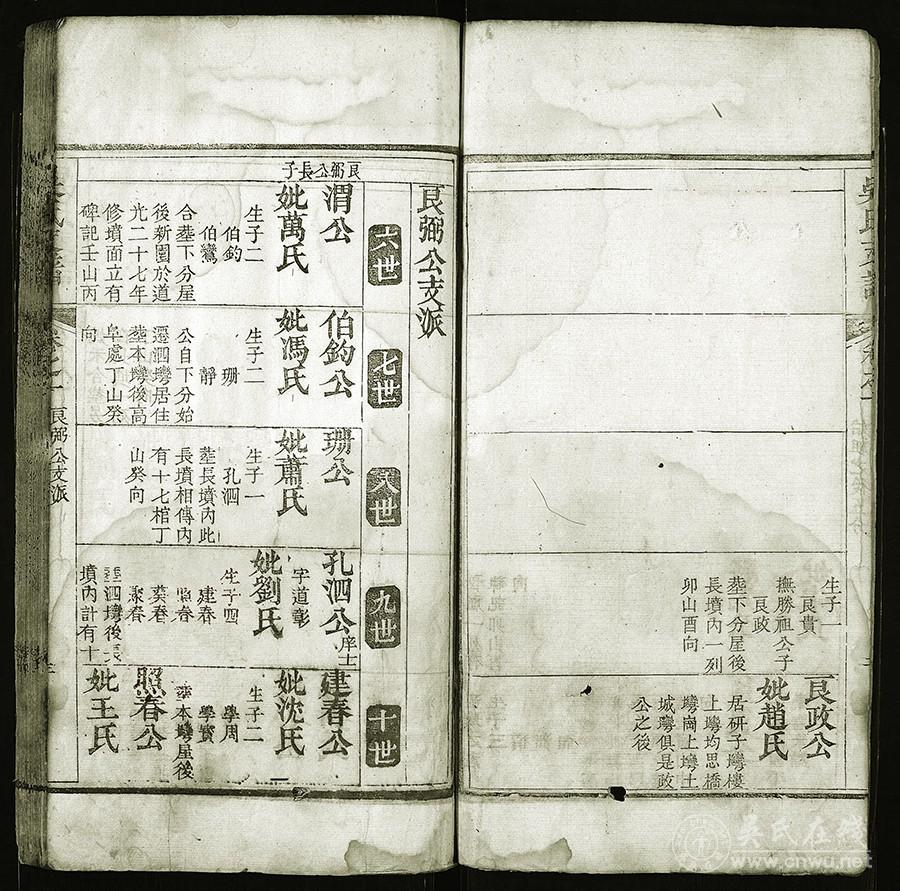 生子一
良貴
撫勝祖公子
良政
葬下分屋後
長墳內一列
卯山酉向
良政公
妣趙氏
居研子塆樓
上塆均思橋
塆崗上塆土
城塆俱是政
公之後
良弼公支派
六世
七世
八世
九世
十世
良弼公長子
渭公
妣萬氏
生子二
伯鈞
伯鸞
合葬下分屋
後新園於道
光二十七年
修墳面立有
碑記壬山丙
向
伯鈞公
妣馮氏
生子二
珊
靜
公自下分始
遷泗塆居住
葬本塆後高
阜處丁山癸
珊公
妣蕭氏
生子一
孔泗
葬長墳內此
長墳相傳內
有十七棺丁
山癸向
孔泗公 庠士
字道彰
妣劉氏
生子四
建春
葵春
聚春
葬泗塆後長
墳內計有十
建春公
妣沈氏
生子二
學周
學賓
葬本塆屋後
照春公
妣王氏
良弼公支派
吴氏在线
www.cnwu.net